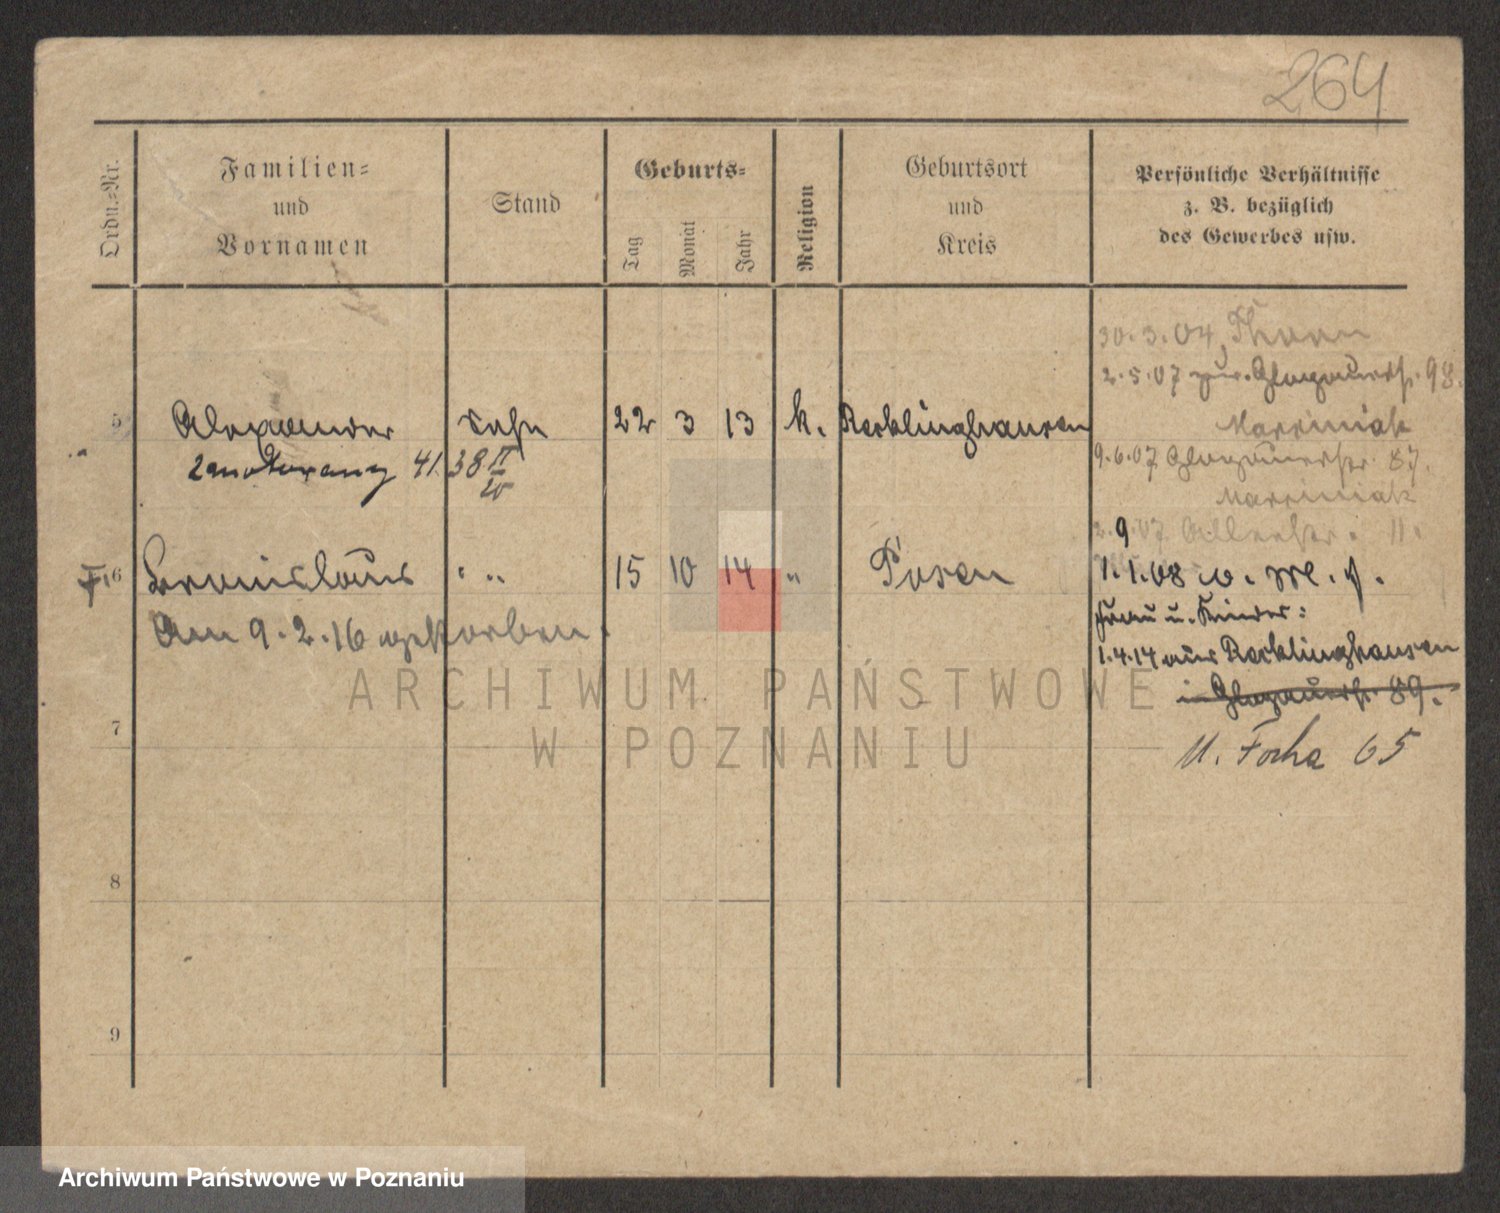 264
Ordn.-Nr.
Familien-
und
Vornamen
Stand
Geburts-
Tag
Monat
Jahr
Religion
Geburtsort
und
Kreis
Persönliche Verhältnisse
z. B. bezüglich
des Gewerbes usw.
30.3.04 Thorn
2.5.07 zur. Glogauerstr. 98.
5 Alexander Sohn 22 3 13 k. Recklinghausen
Marciniak
41. 38 II
20
9.6.07 Glogauerstr. 87.
Marciniak
2.9.07 11.
6 Bronislaus " " 15 10 14 " Posen
1.1.08 v. M. f.
Frau u. Kinder:
Am 9.2.16 gestorben.
1.4.14 aus Recklinghausen
i. Glogauerstr. 89.
7
M. Focha 65
8
9
ARCHIWUM PAŃSTWOWE
W POZNANIU
Archiwum Państwowe w Poznaniu